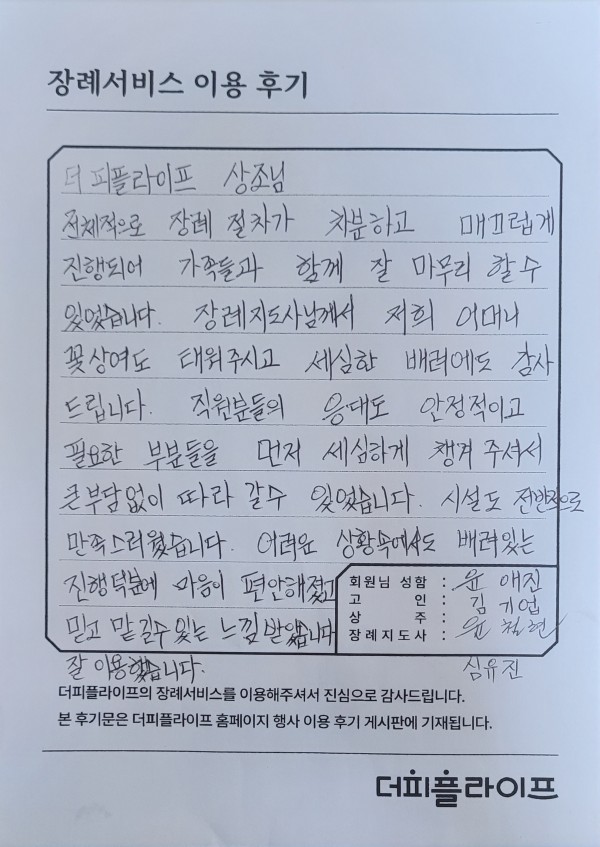 장례서비스 이용 후기
더피플라이프 상조님
전체적으로 장례 절차가 차분하고 매끄럽게
진행되어 가족들과 함께 잘 마무리 할 수
있었습니다. 장례지도사님께서 저희 어머니
꽃상여도 태워주시고 세심한 배려에도 감사
드립니다. 직원분들의 응대도 안정적이고
필요한 부분들을 먼저 세심하게 챙겨 주셔서
큰부담없이 따라 갈수 있었습니다. 시설도 전반적으로
만족스러웠습니다. 어려운 상황속에서도 배려있는
진행덕분에 마음이 편안해졌고
믿고 맡길수 있는 느낌 받았습니다
잘 이용했습니다.
회원님 성함 : 윤애진
고 인 : 김기업
상 주 : 윤철현
장례지도사 : 심유진
더피플라이프의 장례서비스를 이용해주셔서 진심으로 감사드립니다.
본 후기문은 더피플라이프 홈페이지 행사 이용 후기 게시판에 기재됩니다.
더피플라이프